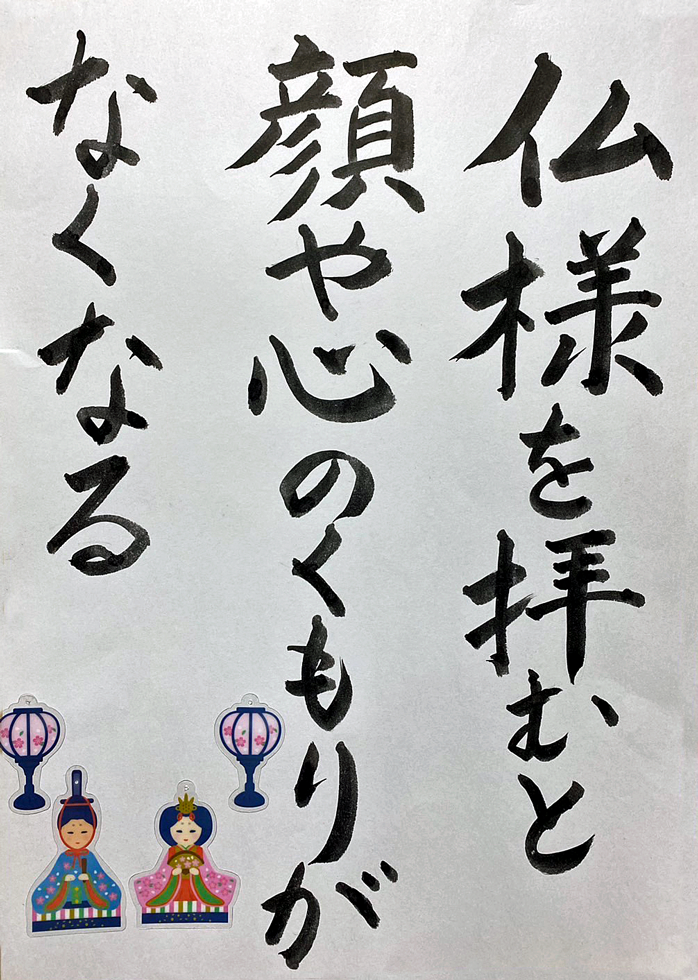 仏様を拝むと
顔や心のくもりが
なくなる